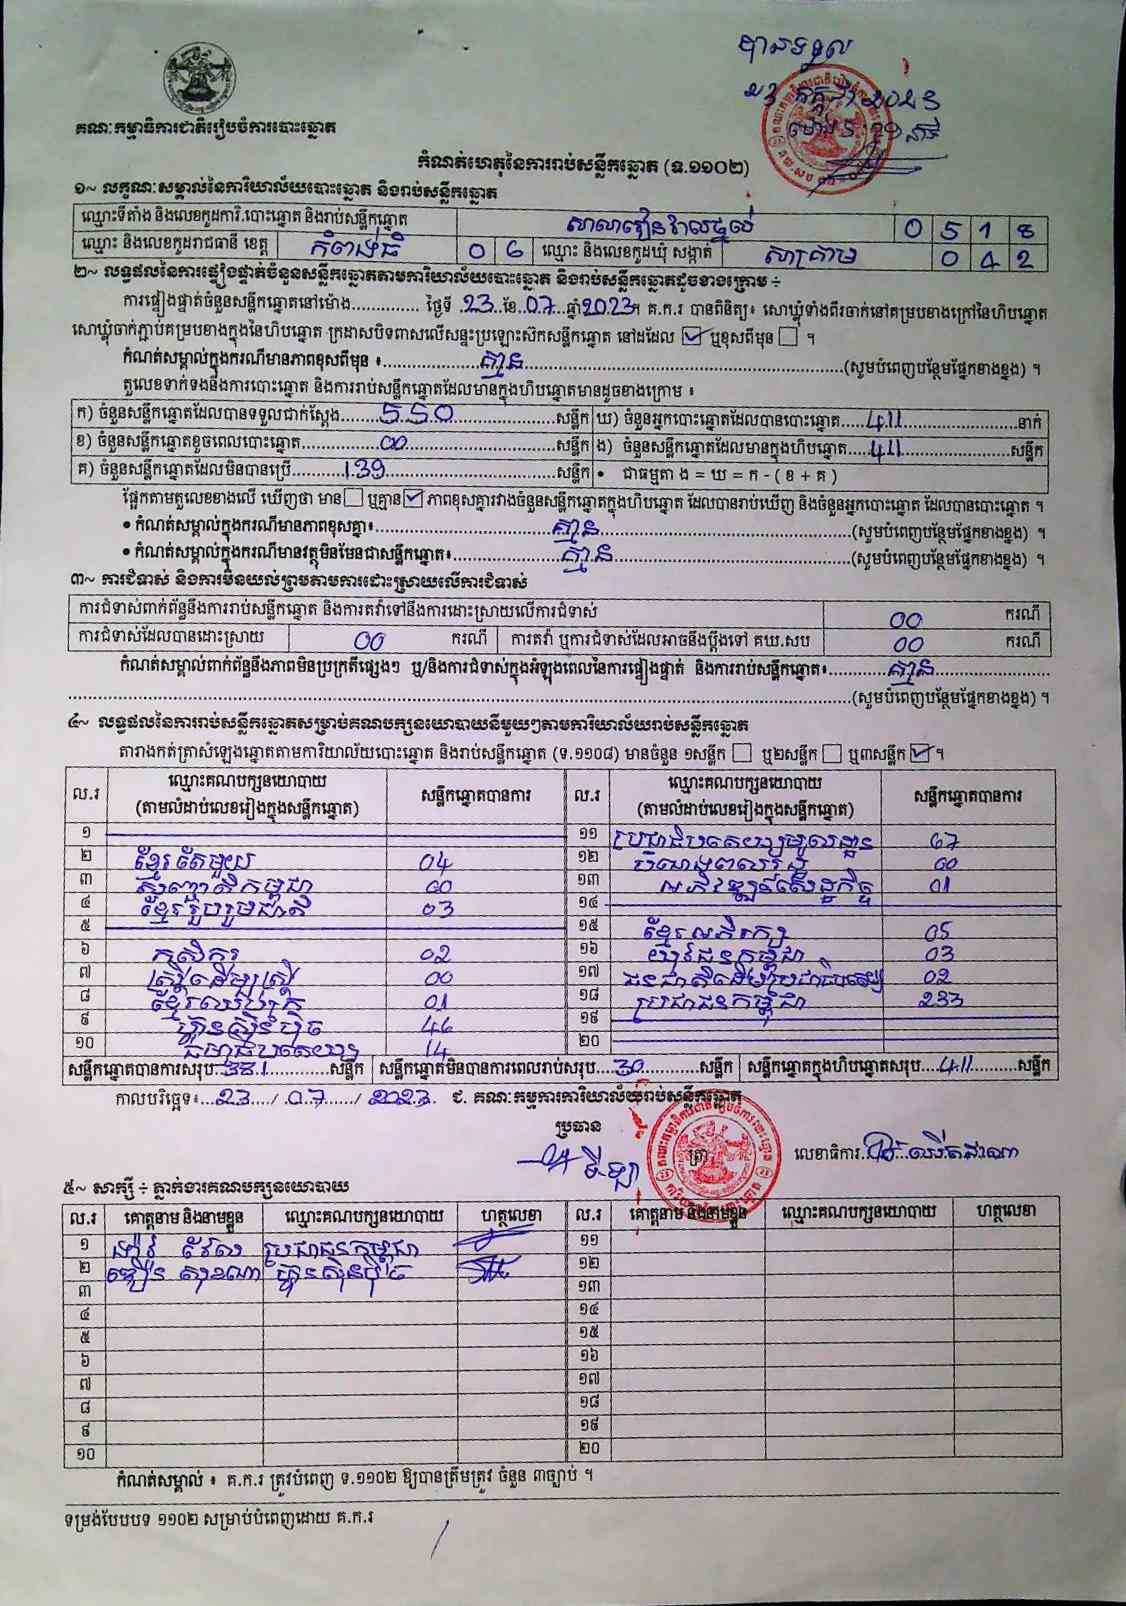 បានទទួល
23 កក្កដា 2023
គណៈកម្មាធិការជាតិរៀបចំការបោះឆ្នោត
កំណត់ហេតុនៃការរាប់សន្លឹកឆ្នោត (ទ.១១០២)
១~ លក្ខណៈសម្គាល់នៃការិយាល័យបោះឆ្នោត និងរាប់សន្លឹកឆ្នោត
ឈ្មោះទីតាំង និងលេខកូដការិ.បោះឆ្នោត និងរាប់សន្លឹកឆ្នោត សាលារៀនវាលថ្នល់ 0 5 1 8
ឈ្មោះ និងលេខកូដរាជធានី ខេត្ត កំពង់ធំ 0 6 ឈ្មោះ និងលេខកូដឃុំ សង្កាត់ សាគ្រាម 0 4 2
២~ លទ្ធផលនៃការផ្ទៀងផ្ទាត់ចំនួនសន្លឹកឆ្នោតតាមការិយាល័យបោះឆ្នោត និងរាប់សន្លឹកឆ្នោតដូចខាងក្រោម ÷
ការផ្ទៀងផ្ទាត់ចំនួនសន្លឹកឆ្នោតនៅម៉ោង............... ថ្ងៃទី .23..ខែ..07..ឆ្នាំ2023។ គ.ក.រ បានពិនិត្យ៖ សោឃ្មុំទាំងពីរចាក់នៅគម្របខាងក្រៅនៃហិបឆ្នោត
សោឃ្មុំចាក់ភ្ជាប់គម្របខាងក្នុងនៃហិបឆ្នោត ក្រដាសបិទពាសលើសន្ទះប្រឡោះស៊កសន្លឹកឆ្នោត នៅដដែល ☑ ឬខុសពីមុន ☐ ។
កំណត់សម្គាល់ក្នុងករណីមានភាពខុសពីមុន ៖..........គ្មាន..........(សូមបំពេញបន្ថែមផ្នែកខាងខ្នង) ។
តួលេខទាក់ទងនឹងការបោះឆ្នោត និងការរាប់សន្លឹកឆ្នោតដែលមានក្នុងហិបឆ្នោតមានដូចខាងក្រោម ៖
ក) ចំនួនសន្លឹកឆ្នោតដែលបានទទួលជាក់ស្ដែង........550........សន្លឹក ឃ) ចំនួនអ្នកបោះឆ្នោតដែលបានបោះឆ្នោត....411....នាក់
ខ) ចំនួនសន្លឹកឆ្នោតខូចពេលបោះឆ្នោត........00........សន្លឹក ង) ចំនួនសន្លឹកឆ្នោតដែលមានក្នុងហិបឆ្នោត....411....សន្លឹក
គ) ចំនួនសន្លឹកឆ្នោតដែលមិនបានប្រើ........139........សន្លឹក • ជាធម្មតា ង = ឃ = ក - ( ខ + គ )
ផ្អែកតាមតួលេខខាងលើ ឃើញថា មាន ☐ ឬគ្មាន ☑ ភាពខុសគ្នារវាងចំនួនសន្លឹកឆ្នោតក្នុងហិបឆ្នោត ដែលបានរាប់ឃើញ និងចំនួនអ្នកបោះឆ្នោត ដែលបានបោះឆ្នោត ។
• កំណត់សម្គាល់ក្នុងករណីមានភាពខុសគ្នា៖..........គ្មាន..........(សូមបំពេញបន្ថែមផ្នែកខាងខ្នង) ។
• កំណត់សម្គាល់ក្នុងករណីមានវត្ថុមិនមែនជាសន្លឹកឆ្នោត៖..........គ្មាន..........(សូមបំពេញបន្ថែមផ្នែកខាងខ្នង) ។
៣~ ការជំទាស់ និងការមិនយល់ព្រមតាមការដោះស្រាយលើការជំទាស់
ការជំទាស់ពាក់ព័ន្ធនឹងការរាប់សន្លឹកឆ្នោត និងការតវ៉ាទៅនឹងការដោះស្រាយលើការជំទាស់ 00 ករណី
ការជំទាស់ដែលបានដោះស្រាយ 00 ករណី ការតវ៉ា ឬការជំទាស់ដែលអាចនឹងប្ដឹងទៅ គឃ.សប 00 ករណី
កំណត់សម្គាល់ពាក់ព័ន្ធនឹងភាពមិនប្រក្រតីផ្សេងៗ ឬ/និងការជំទាស់ក្នុងអំឡុងពេលនៃការផ្ទៀងផ្ទាត់ និងការរាប់សន្លឹកឆ្នោត៖..........គ្មាន..........
..........(សូមបំពេញបន្ថែមផ្នែកខាងខ្នង) ។
៤~ លទ្ធផលនៃការរាប់សន្លឹកឆ្នោតសម្រាប់គណបក្សនយោបាយនីមួយៗតាមការិយាល័យរាប់សន្លឹកឆ្នោត
តារាងកត់ត្រាសំឡេងឆ្នោតតាមការិយាល័យបោះឆ្នោត និងរាប់សន្លឹកឆ្នោត (ទ.១១០៨) មានចំនួន ១សន្លឹក ☐ ឬ២សន្លឹក ☐ ឬ៣សន្លឹក ☑ ។
ល.រ ឈ្មោះគណបក្សនយោបាយ (តាមលំដាប់លេខរៀងក្នុងសន្លឹកឆ្នោត) សន្លឹកឆ្នោតបានការ ល.រ ឈ្មោះគណបក្សនយោបាយ (តាមលំដាប់លេខរៀងក្នុងសន្លឹកឆ្នោត) សន្លឹកឆ្នោតបានការ
១ ១១ ប្រជាធិបតេយ្យមូលដ្ឋាន 67
២ ខ្មែរតែមួយ 04 ១២ បំណងពលរដ្ឋ 00
៣ សញ្ជាតិកម្ពុជា 00 ១៣ អភិវឌ្ឍន៍សេដ្ឋកិច្ច 01
៤ ខ្មែររួបរួមជាតិ 03 ១៤
៥ ១៥ ខ្មែរអភិរក្ស 05
៦ កសិករ 02 ១៦ យុវជនកម្ពុជា 03
៧ ស្ត្រីដើម្បីស្ត្រី 00 ១៧ ជនជាតិដើមប្រជាធិបតេយ្យ 02
៨ ខ្មែរឈប់ក្រ 01 ១៨ ប្រជាជនកម្ពុជា 233
៩ ហ្វ៊ុនស៊ិនប៉ិច 46 ១៩
១០ ធម្មាធិបតេយ្យ 14 ២០
សន្លឹកឆ្នោតបានការសរុប..381......សន្លឹក សន្លឹកឆ្នោតមិនបានការពេលរាប់សរុប....30......សន្លឹក សន្លឹកឆ្នោតក្នុងហិបឆ្នោតសរុប...411......សន្លឹក
កាលបរិច្ឆេទ៖...23..../..07..../..2023. ជ. គណៈកម្មការការិយាល័យរាប់សន្លឹកឆ្នោត
ប្រធាន
ត្រា លេខាធិការ
៥~ សាក្សី ÷ ភ្នាក់ងារគណបក្សនយោបាយ
ល.រ គោត្តនាម និងនាមខ្លួន ឈ្មោះគណបក្សនយោបាយ ហត្ថលេខា ល.រ គោត្តនាម និងនាមខ្លួន ឈ្មោះគណបក្សនយោបាយ ហត្ថលេខា
១ ប្រជាជនកម្ពុជា ១១
២ ហ្វ៊ុនស៊ិនប៉ិច ១២
៣ ១៣
៤ ១៤
៥ ១៥
៦ ១៦
៧ ១៧
៨ ១៨
៩ ១៩
១០ ២០
កំណត់សម្គាល់ ៖ គ.ក.រ ត្រូវបំពេញ ទ.១១០២ ឱ្យបានត្រឹមត្រូវ ចំនួន ៣ច្បាប់ ។
ទម្រង់បែបបទ ១១០២ សម្រាប់បំពេញដោយ គ.ក.រ